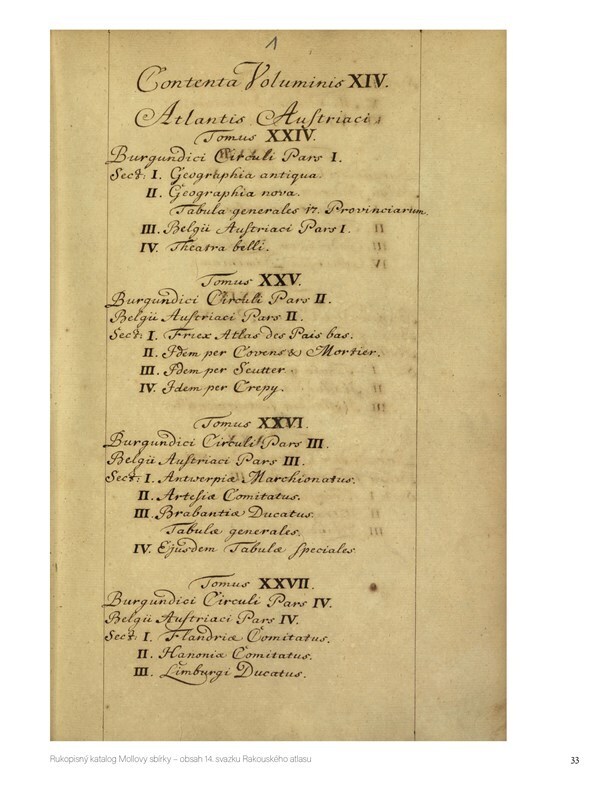 1
Contenta Voluminis XIV.
Atlantis Austriaci.
Tomus XXIV.
Burgundici Circuli Pars I.
Sect: I. Geographia antiqua.
II. Geographia nova.
Tabula generales 17. Provinciarum.
III. Belgii Austriaci Pars I.
IV. Theatra belli.
Tomus XXV.
Burgundici Circuli Pars II.
Belgii Austriaci Pars II.
Sect: I. Friex Atlas des Pais bas.
II. Idem per Covens & Mortier.
III. Idem per Seutter.
IV. Idem per Crepy.
Tomus XXVI.
Burgundici Circuli Pars III.
Belgii Austriaci Pars III.
Sect: I. Antwerpiæ Marchionatus.
II. Artesiæ Comitatus.
III. Brabantiæ Ducatus.
Tabulæ generales.
IV. Ejusdem Tabulæ speciales
Tomus XXVII.
Burgundici Circuli Pars IV.
Belgii Austriaci Pars IV.
Sect: I. Flandriæ Comitatus.
II. Hanoniæ Comitatus.
III. Limburgi Ducatus.
Rukopisný katalog Mollovy sbírky – obsah 14. svazku Rakouského atlasu
33